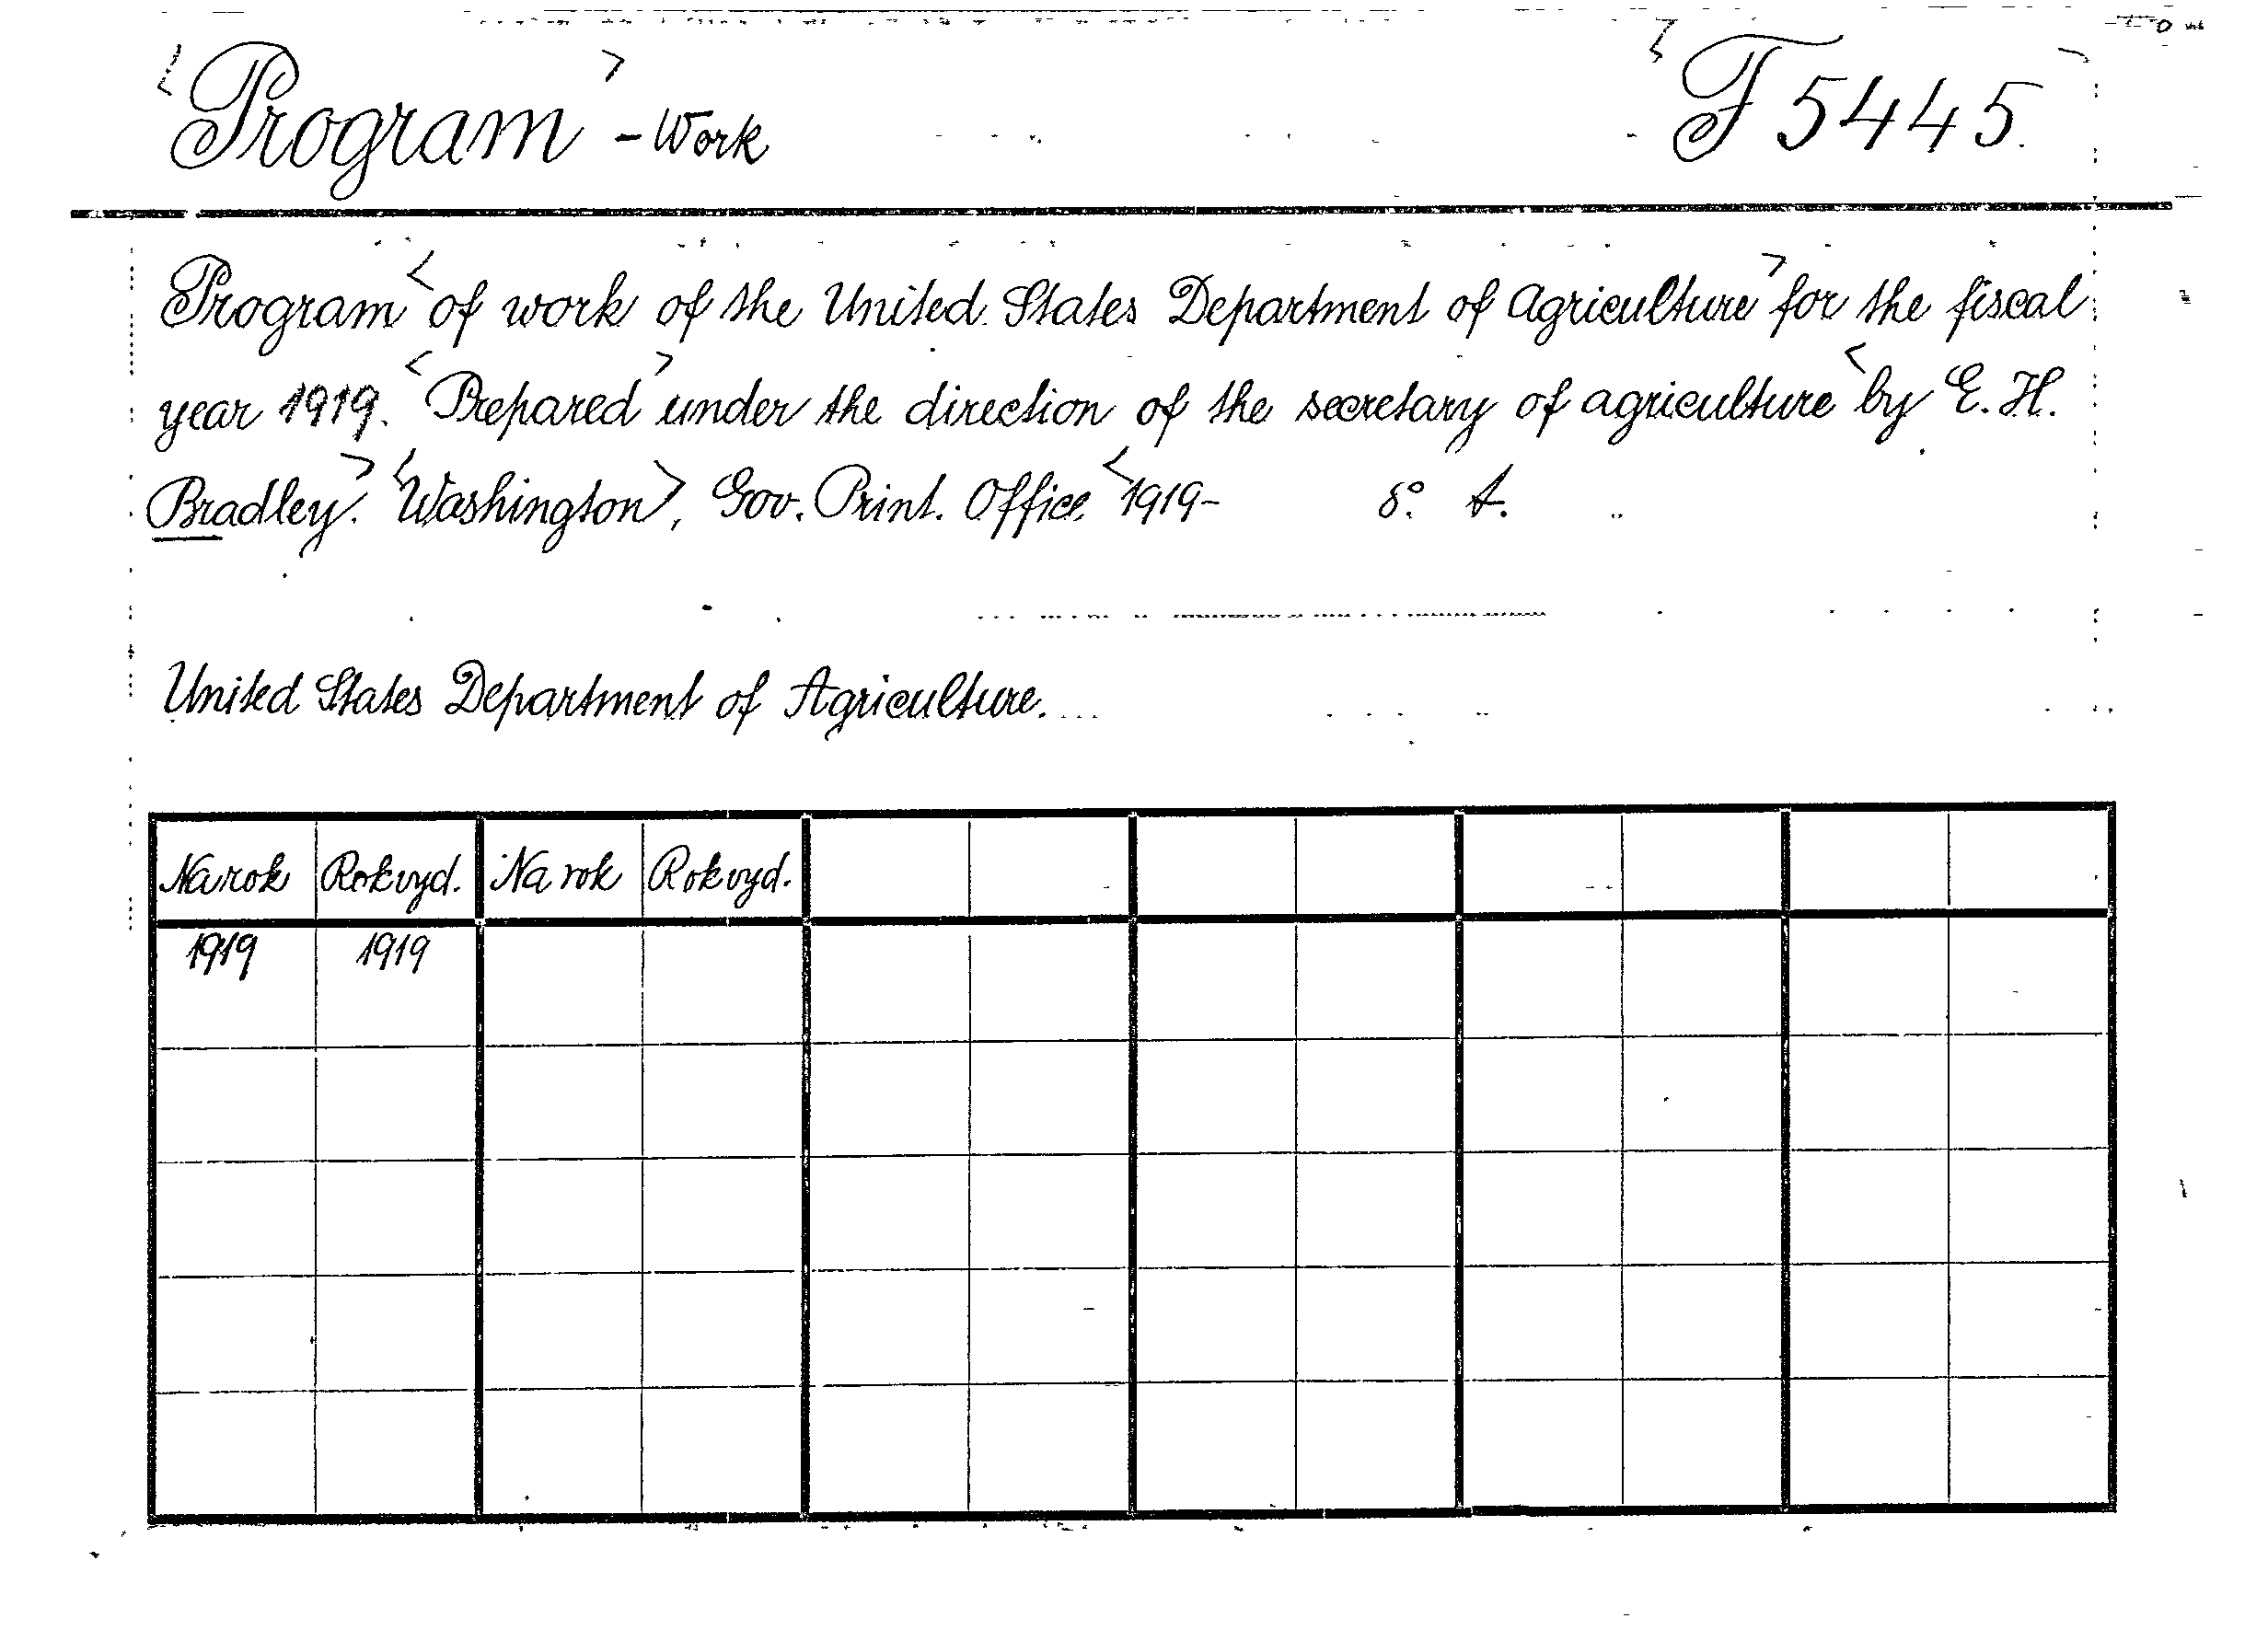 <Program> - Work <F 5445.>
Program <of work of the United States Department of Agriculture> for the fiscal
year 1919. <Prepared> under the direction of the secretary of agriculture <by E. H.
Bradley>. <Washington>, Gov. Print. Office, <1919-   8°. A.
United States Department of Agriculture.
Na rok Rok vyd. Na rok Rok vyd.
1919 1919